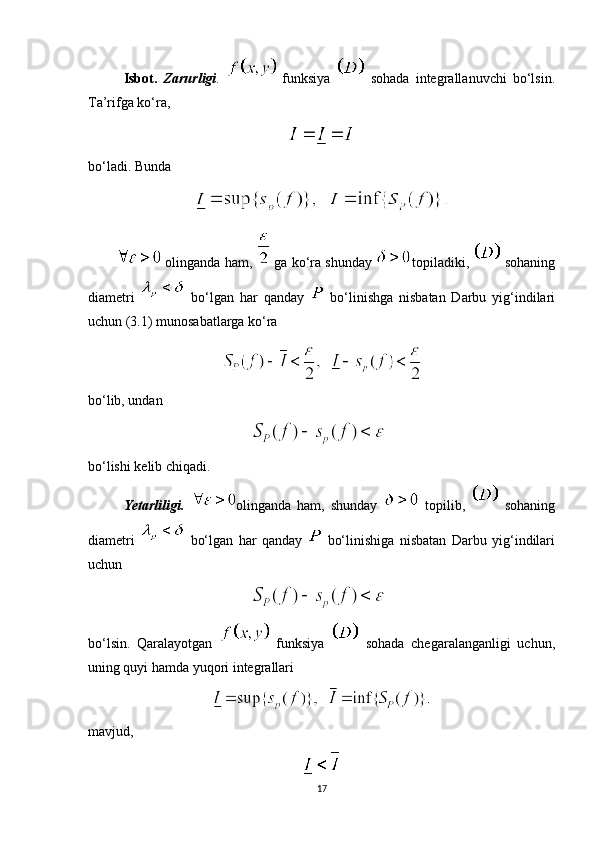 Isbot. Zarurligi. f(x,y) funksiya (D) sohada integrallanuvchi bo‘lsin.
Ta’rifga ko‘ra,
I = I̲ = I
bo‘ladi. Bunda
I̲ = sup{s_p(f)}, I = inf{S_P(f)}.
∀ε > 0 olinganda ham, ε/2 ga ko‘ra shunday δ > 0 topiladiki, (D) sohaning
diametri λ_p < δ bo‘lgan har qanday P bo‘linishga nisbatan Darbu yig‘indilari
uchun (3.1) munosabatlarga ko‘ra
S_P(f) - I̅ < ε/2, I̲ - s_p(f) < ε/2
bo‘lib, undan
S_P(f) - s_p(f) < ε
bo‘lishi kelib chiqadi.
Yetarliligi. ∀ε > 0 olinganda ham, shunday δ > 0 topilib, (D) sohaning
diametri λ_p < δ bo‘lgan har qanday P bo‘linishiga nisbatan Darbu yig‘indilari
uchun
S_P(f) - s_p(f) < ε
bo‘lsin. Qaralayotgan f(x,y) funksiya (D) sohada chegaralanganligi uchun,
uning quyi hamda yuqori integrallari
I̲ = sup{s_p(f)}, I̅ = inf{S_P(f)}.
mavjud,
I̲ < I̅
17